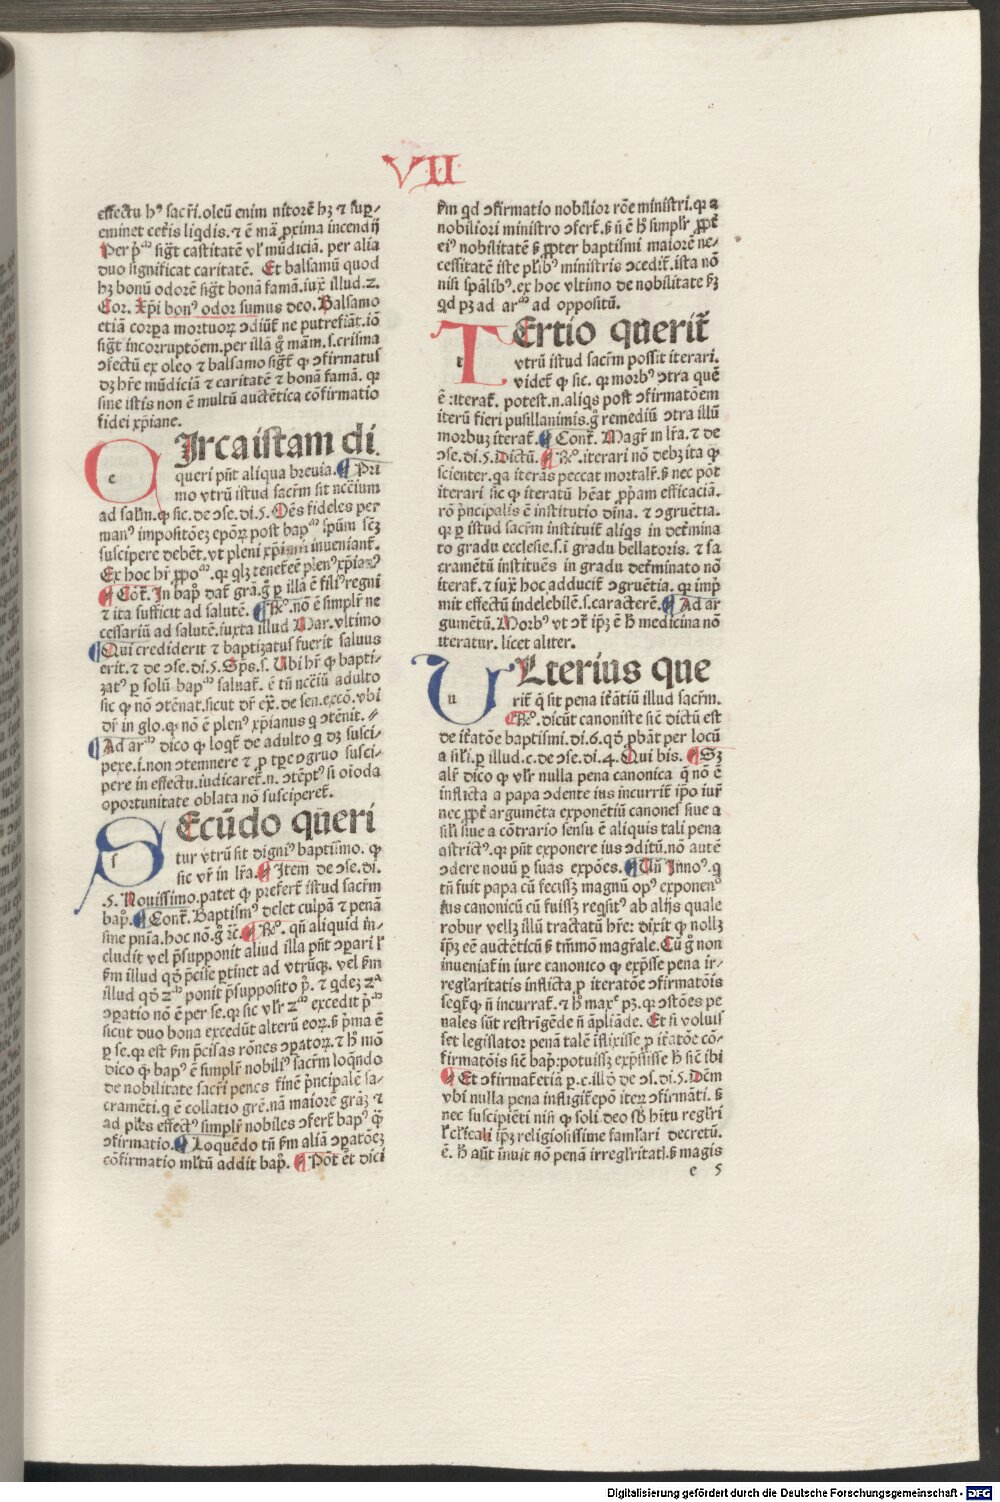 VII
effectu hꝰ sacr̄i.oleū enim nitorē hꝫ ⁊ suꝑ⸗
eminet ceteris liqdis.⁊ ē mā ꝓxima incendij
Per pᵐ sigt castitatē vl' mūdiciā. per alia
duo significat caritatē. Et balsamū quod
hꝫ bonū odorē sigt bonā famā.iux̄ illud.2.
Cor. Xp̄i bonꝰ odor sumus deo. Balsamo
etiā corꝑa mortuoꝝ ↄdiūt̄ ne putrefiāt.iō
sigt incorruptōem.per illā g̊ mām.s.crisma
ↄfectū ex oleo ⁊ balsamo sigt̄ ꝙ ↄfirmatus
dꝫ hr̄e mūdiciā ⁊ caritatē ⁊ bonā famā. qꝛ
sine istis non ē multū auctētica cōfirmatio
fidei xp̄iane.
c Irca istam di.
queri pn̄t aliqua breuia. ¶ Pri
mo vtrū istud sacr̄m sit nccīum
ad salm̄.ꝙ sic.de ↄse.di.5. Oēs fideles per
manꝰ impositōeꝫ ep̄oꝝ post bapᵐ spūm scꝫ
suscipere debēt.vt pleni xp̄iani inueniant̄.
Ex hoc hr̄ ꝓpoᵐ. qꝛ qlꝫ tenet̄ eē plenꝰ xp̄ianꝰ
¶ Cōt̄. In bap̊ dat̄ grā.g̊ ꝑ illā ē filiꝰ regni
⁊ ita sufficit ad salutē. ¶ Rꝰ. nō ē simplr̄ ne
cessariū ad salutē.iuxta illud Mar.vltimo
¶ Qui crediderit ⁊ baptizatus fuerit saluus
erit.⁊ de ↄse.di.5. Sp̄s.s. Vbi hr̄ ꝙ bapti⸗
zatꝰ ꝑ solū bapᵐ saluat̄. ē tn̄ nccīū adulto
sic ꝙ nō ↄtēnat.sicut dr̄ ex̄. de sen.excō.vbi
dr̄ in glo.ꝙ nō ē plenꝰ xp̄ianus q ↄtēnit.⸗
¶ Ad arᵐ dico ꝙ loqt̄ de adulto q dꝫ susci⸗
pere.i.non ↄtemnere ⁊ ꝓ tp̄e ↄgruo susci⸗
pere in effectu.iudicaret̄.n. ↄtēptꝰ si oīoda
oportunitate oblata nō susciperet̄.
s Ecūdo qūeri
tur vtrū sit digniꝰ baptismo. ꝙ
sic vr̄ in lr̄a. ¶ Item de ↄse.di.
.5. Nouissimo.patet ꝙ prefert̄ istud sacr̄m
bap̊. ¶ Cont̄. Baptismꝰ delet culpā ⁊ penā
sine pnīa.hoc nō.g̊ ⁊c̄. ¶ Rꝰ. qn̄ aliquid in⸗
cludit vel p̄supponit aliud illa pn̄t ↄꝑari l'
fm illud qd̊ p̄cise ꝑtinet ad vtrūqꝫ. vel fm
illud qd̊ 2ᵐ ponit p̄supposito p̊. ⁊ qdeꝫ 2ᵃ
ↄꝑatio nō ē per se.qꝛ sic vlr̄ 2ᵐ excedit pᵐ
sicut duo bona excedūt alterū eoꝝ.ꝫ p̄ma ē
ꝑ se.qꝛ est fm p̄cisas rōnes ↄꝑatoꝝ.⁊ hꝰ mō
dico ꝙ bapꝰ ē simplr̄ nobiliꝰ sacr̄m loqndo
de nobilitate sacr̄i penes finē p̄ncipalē sa⸗
cramēti.q ē collatio grē.nā maiorē grāꝫ ⁊
ad pl'es effectꝰ simplr̄ nobiles ↄfert̄ bapꝰ q̄ꝫ
ↄfirmatio. ¶ Loquēdo tn̄ fm aliā ↄꝑatōeꝫ
cōfirmatio ml'tū addit bap̊. ¶ Pōt et̄ dici
fm qd ↄfirmatio nobilior rōe ministri.qꝛ a
nobiliori ministro ↄfert̄.ꝫ ñ ē h̄ simplr̄ ꝓpt̄
eiꝰ nobilitatē ꝫ ꝓpter baptismi maiorē ne⸗
cessitatē iste pl'ibꝰ ministris ↄcedit̄.ista nō
nisi spālibꝰ.ex hoc vltimo de nobilitate hꝫ
qd pꝫ ad arᵐ ad oppositū.
t Ertio querit̄
vtrū istud sacr̄m possit iterari.
videt̄ ꝙ sic. qꝛ morbꝰ ↄtra quē
ē :iterat̄. potest.n.aliqs post ↄfirmatōem
iterū fieri pusillanimis.g̊ remediū ↄtra illū
morbuꝫ iterat̄. ¶ Cont̄. Magr̄ in lr̄a. ⁊ de
ↄse.di.5. Dictū. ¶ Rꝰ.iterari nō debꝫ ita ꝙ
scienter.qa iterās peccat mortalr̄.ꝫ nec pōt
iterari sic ꝙ iteratū hēat ꝓpām efficaciā.
rō p̄ncipalis ē institutio dīna. ⁊ ↄgruētia.
qꝛ ꝑ istud sacr̄m instituit̄ aliqs in det̄mina
to gradu ecclesie.s.ī gradu bellatoris. ⁊ sa
cramētū instituēs in gradu det̄minato nō
iterat̄. ⁊ iux̄ hoc adducit̄ ↄgruētia. qꝛ imp̄
mit effectū indelebilē.s.caracterē. ¶ Ad ar
gumētū. Morbꝰ vt ↄt̄ ip̄ꝫ ē h̄ medicina nō
iteratur. licet aliter.
u Lterius que
rit̄ q̄ sit pena it̄ātiū illud sacr̄m.
¶ Rꝰ. dicūt canoniste sic̄ dictū est
de it̄atōe baptismi.di.6.qd̊ ꝓbāt per locū
a sil'i.ꝑ illud.c.de ↄse.di.4. Qui bis. ¶ Sꝫ
alr̄ dico ꝙ vlr̄ nulla pena canonica q̄ nō ē
inflicta a papa ↄdente ius incurrit̄ ip̄o iur̄
nec ꝓpt̄ argumēta exponētiū canones siue a
sil'i siue a cōtrario sensu ē aliquis tali pena
astrictꝰ.qꝛ pn̄t exponere ius ↄditū.nō autē
ↄdere nouū ꝑ suas expōes. ¶ Vn̄ Innoꝰ.q
tn̄ fuit papa cū fecissꝫ magnū opꝰ exponenˢ
ius canonicū cū fuissꝫ reqsitꝰ ab alijs quale
robur vellꝫ illū tractatū hr̄e: dixit ꝙ nollꝫ
ip̄ꝫ eē auctēticū ꝫ tm̄mō magr̄ale. Cū g̊ non
inueniat̄ in iure canonico ꝙ exp̄sse pena ir⸗
regl'aritatis inflicta ꝓ iteratōe ↄfirmatōis
seqt̄ ꝙ ñ incurrat̄.⁊ h̄ maxᵉ pꝫ.qꝛ ↄstōes pe
nales sūt restrīgēde ñ āpliāde. Et si voluis
set legislator penā talē īflixisse ꝓ it̄atōe cō⸗
firmatōis sic̄ bap̊:potuissꝫ exp̄ssisse h̄ sic̄ ibi
¶ Et ↄfirmat̄ etiā ꝑ.c.illd̊ de ↄs.di.5. Dc̄m
vbi nulla pena infligit̄ ep̄o iteꝝ ↄfirmāti. ꝫ
nec suscipiēti nisi ꝙ soli deo sb̄ hītu regl'ri
l' cl'icali ip̄ꝫ religiosissime famlari decretū.
ē. h̄ aūt īnuit nō penā irregl'ritatꝭ.ꝫ magis
e 5
Digitalisierung gefördert durch die Deutsche Forschungsgemeinschaft - DFG